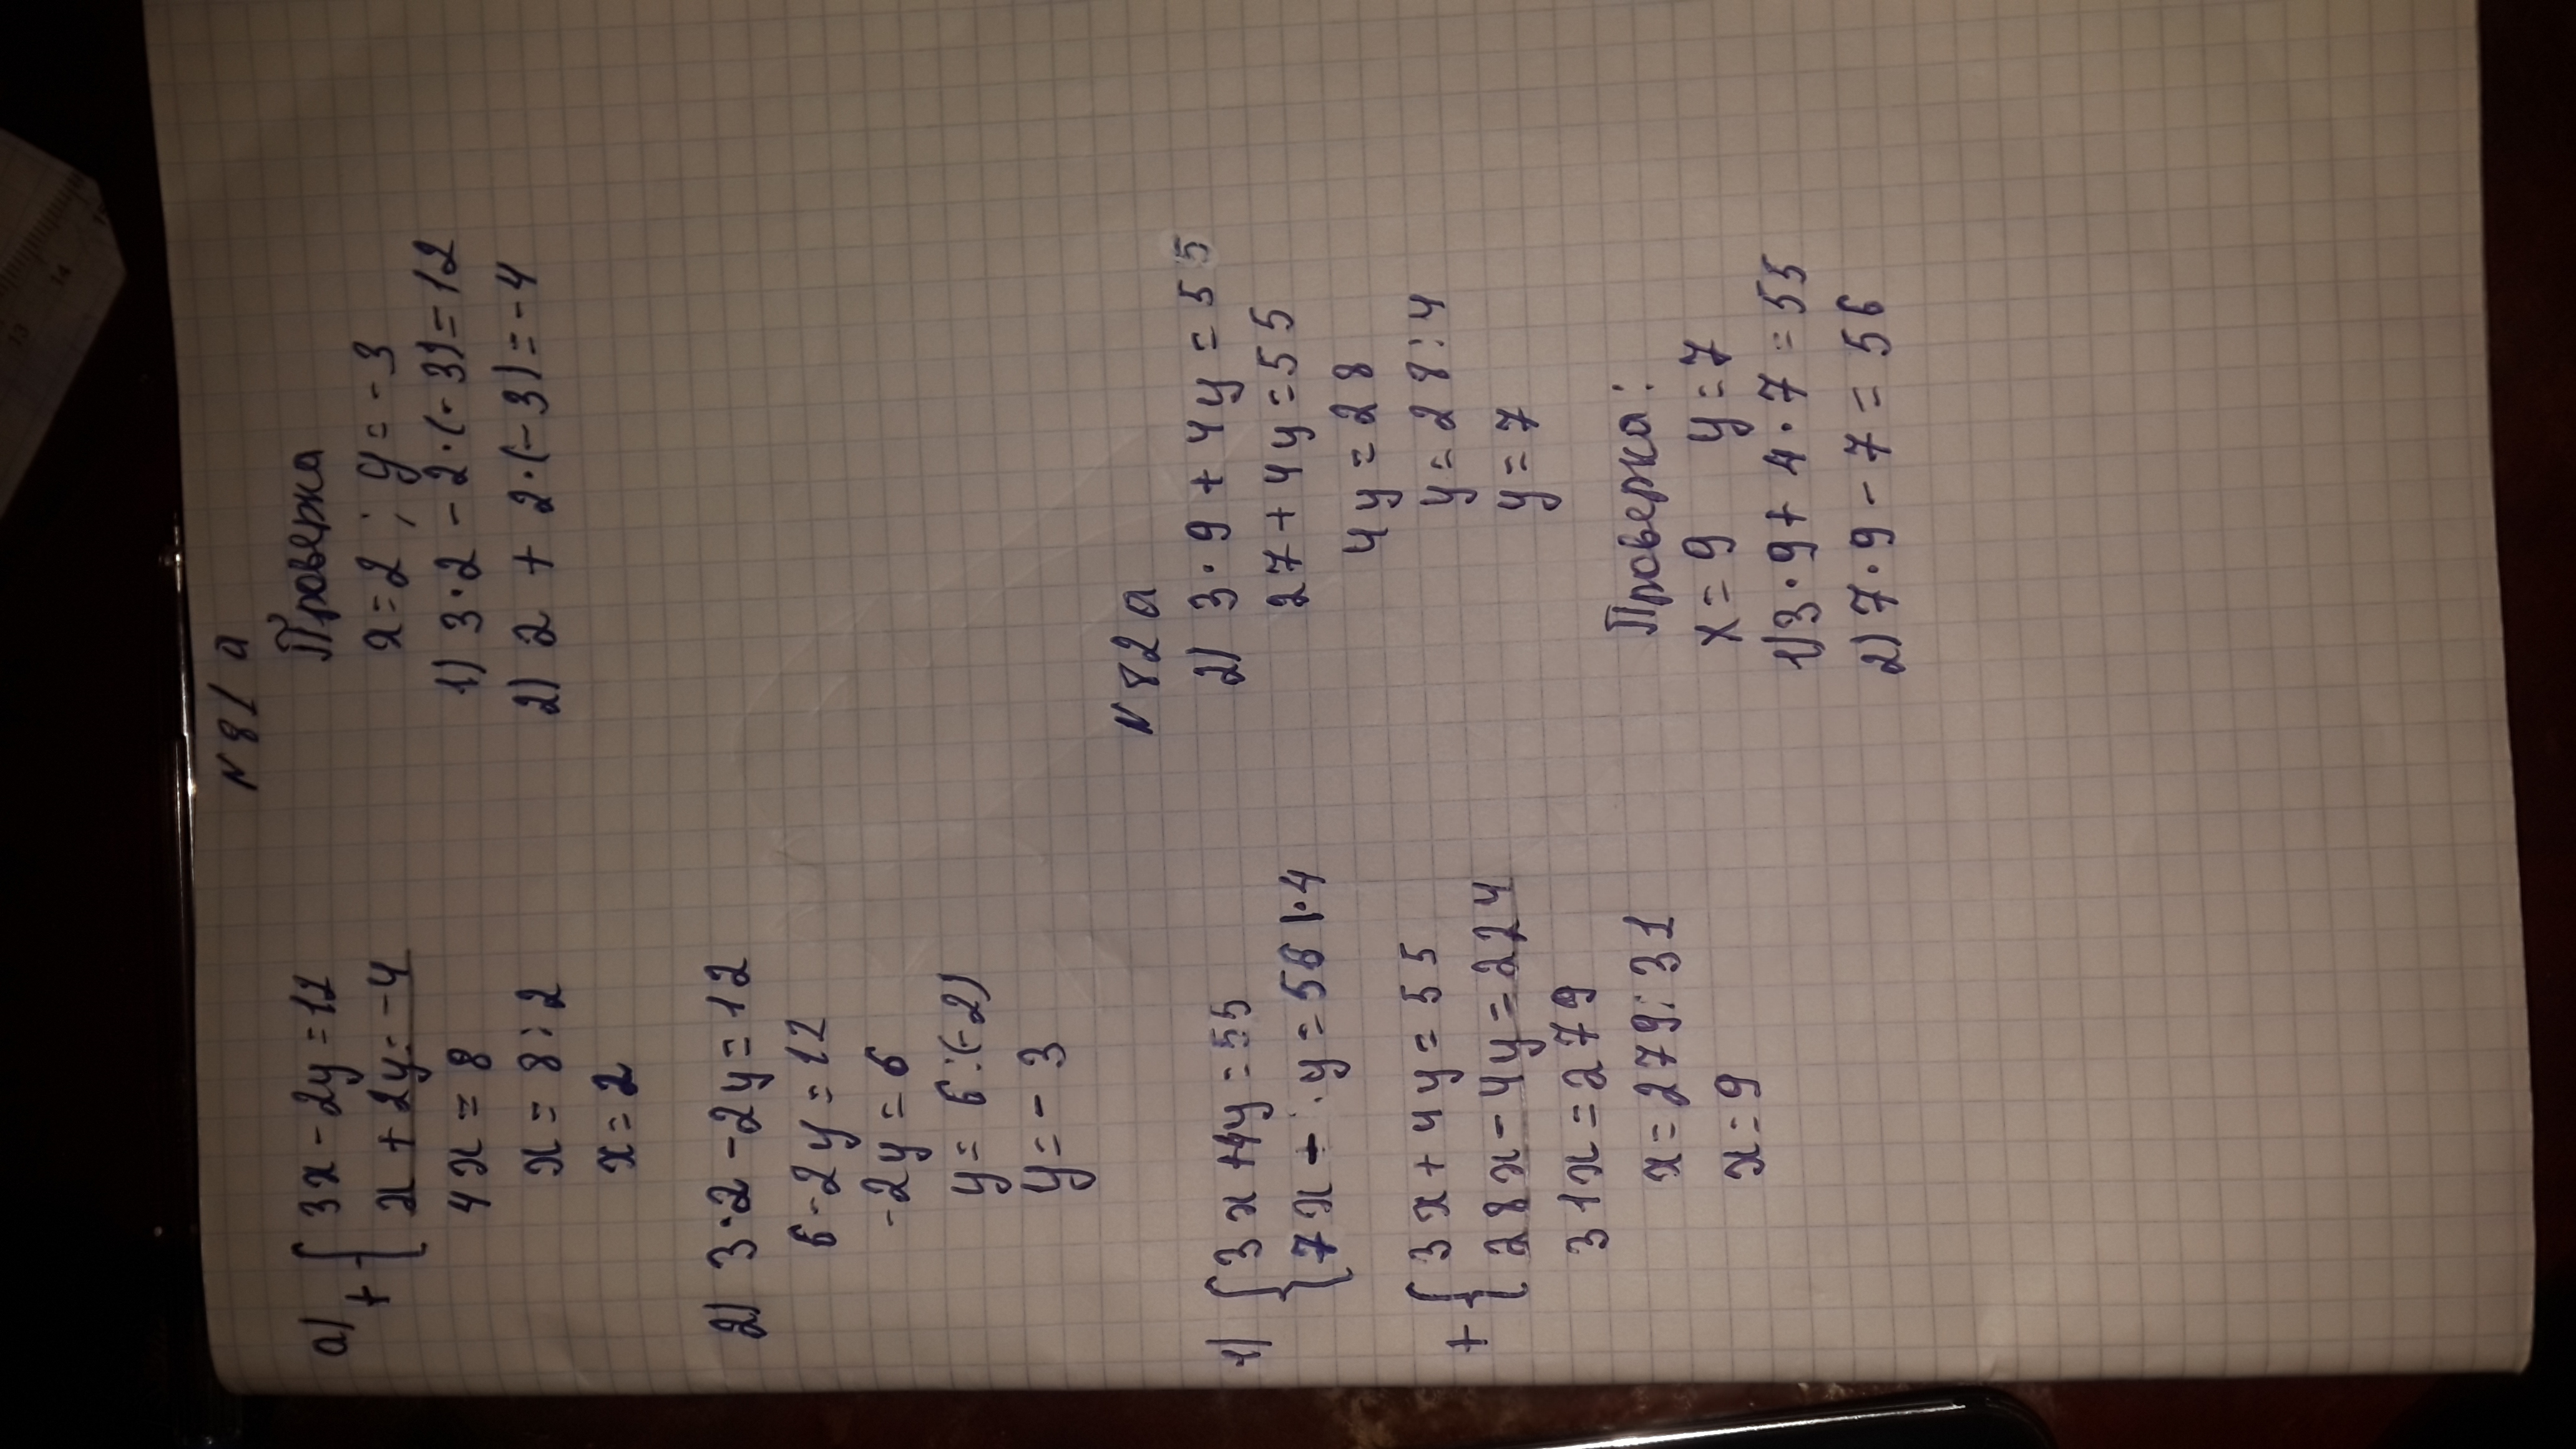 N 81 а
а) + { 3x - 2y = 12
x + 2y = -4
4x = 8
x = 8 : 2
x = 2
2) 3·2 - 2y = 12
6 - 2y = 12
-2y = 6
y = 6 : (-2)
y = - 3
Проверка
x = 2 ; y = - 3
1) 3·2 - 2·(- 3) = 12
2) 2 + 2·(- 3) = - 4
N 82 а
1) { 3x + 4y = 55
7x - y = 56 |·4
+ { 3x + 4y = 55
28x - 4y = 224
31x = 279
x = 279 : 31
x = 9
2) 3·9 + 4y = 55
27 + 4y = 55
4y = 28
y = 28 : 4
y = 7
Проверка:
x = 9 y = 7
1) 3·9 + 4·7 = 55
2) 7·9 - 7 = 56
13 14 15